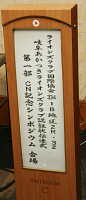 ライオンズクラブ国際協会334-B地区2R・1Z
岐阜あかつきライオンズクラブ認証状伝達式
第一部 CN記念シンポジウム 会場